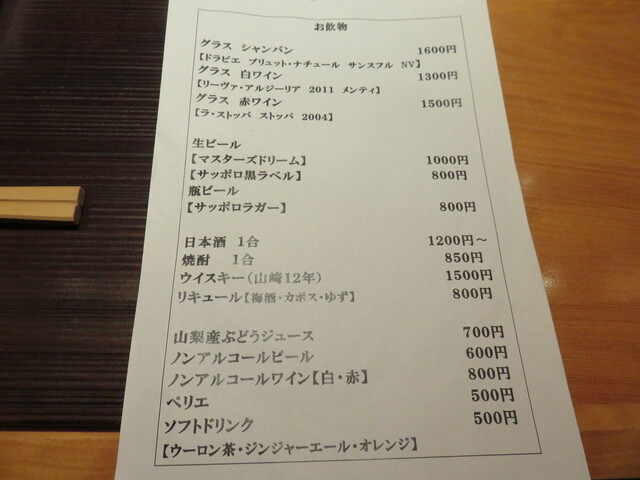 お飲物
グラス シャンパン 1600円
【ドラピエ ブリュット・ナチュール サンスフル NV】
グラス 白ワイン 1300円
【リーヴァ・アルジーリア 2011 メンティ】
グラス 赤ワイン 1500円
【ラ・ストッパ ストッパ 2004】
生ビール
【マスターズドリーム】 1000円
【サッポロ黒ラベル】 800円
瓶ビール
【サッポロラガー】 800円
日本酒 1合 1200円～
焼酎 1合 850円
ウイスキー(山崎12年) 1500円
リキュール【梅酒・カボス・ゆず】 800円
山梨産ぶどうジュース 700円
ノンアルコールビール 600円
ノンアルコールワイン【白・赤】 800円
ペリエ 500円
ソフトドリンク 500円
【ウーロン茶・ジンジャーエール・オレンジ】